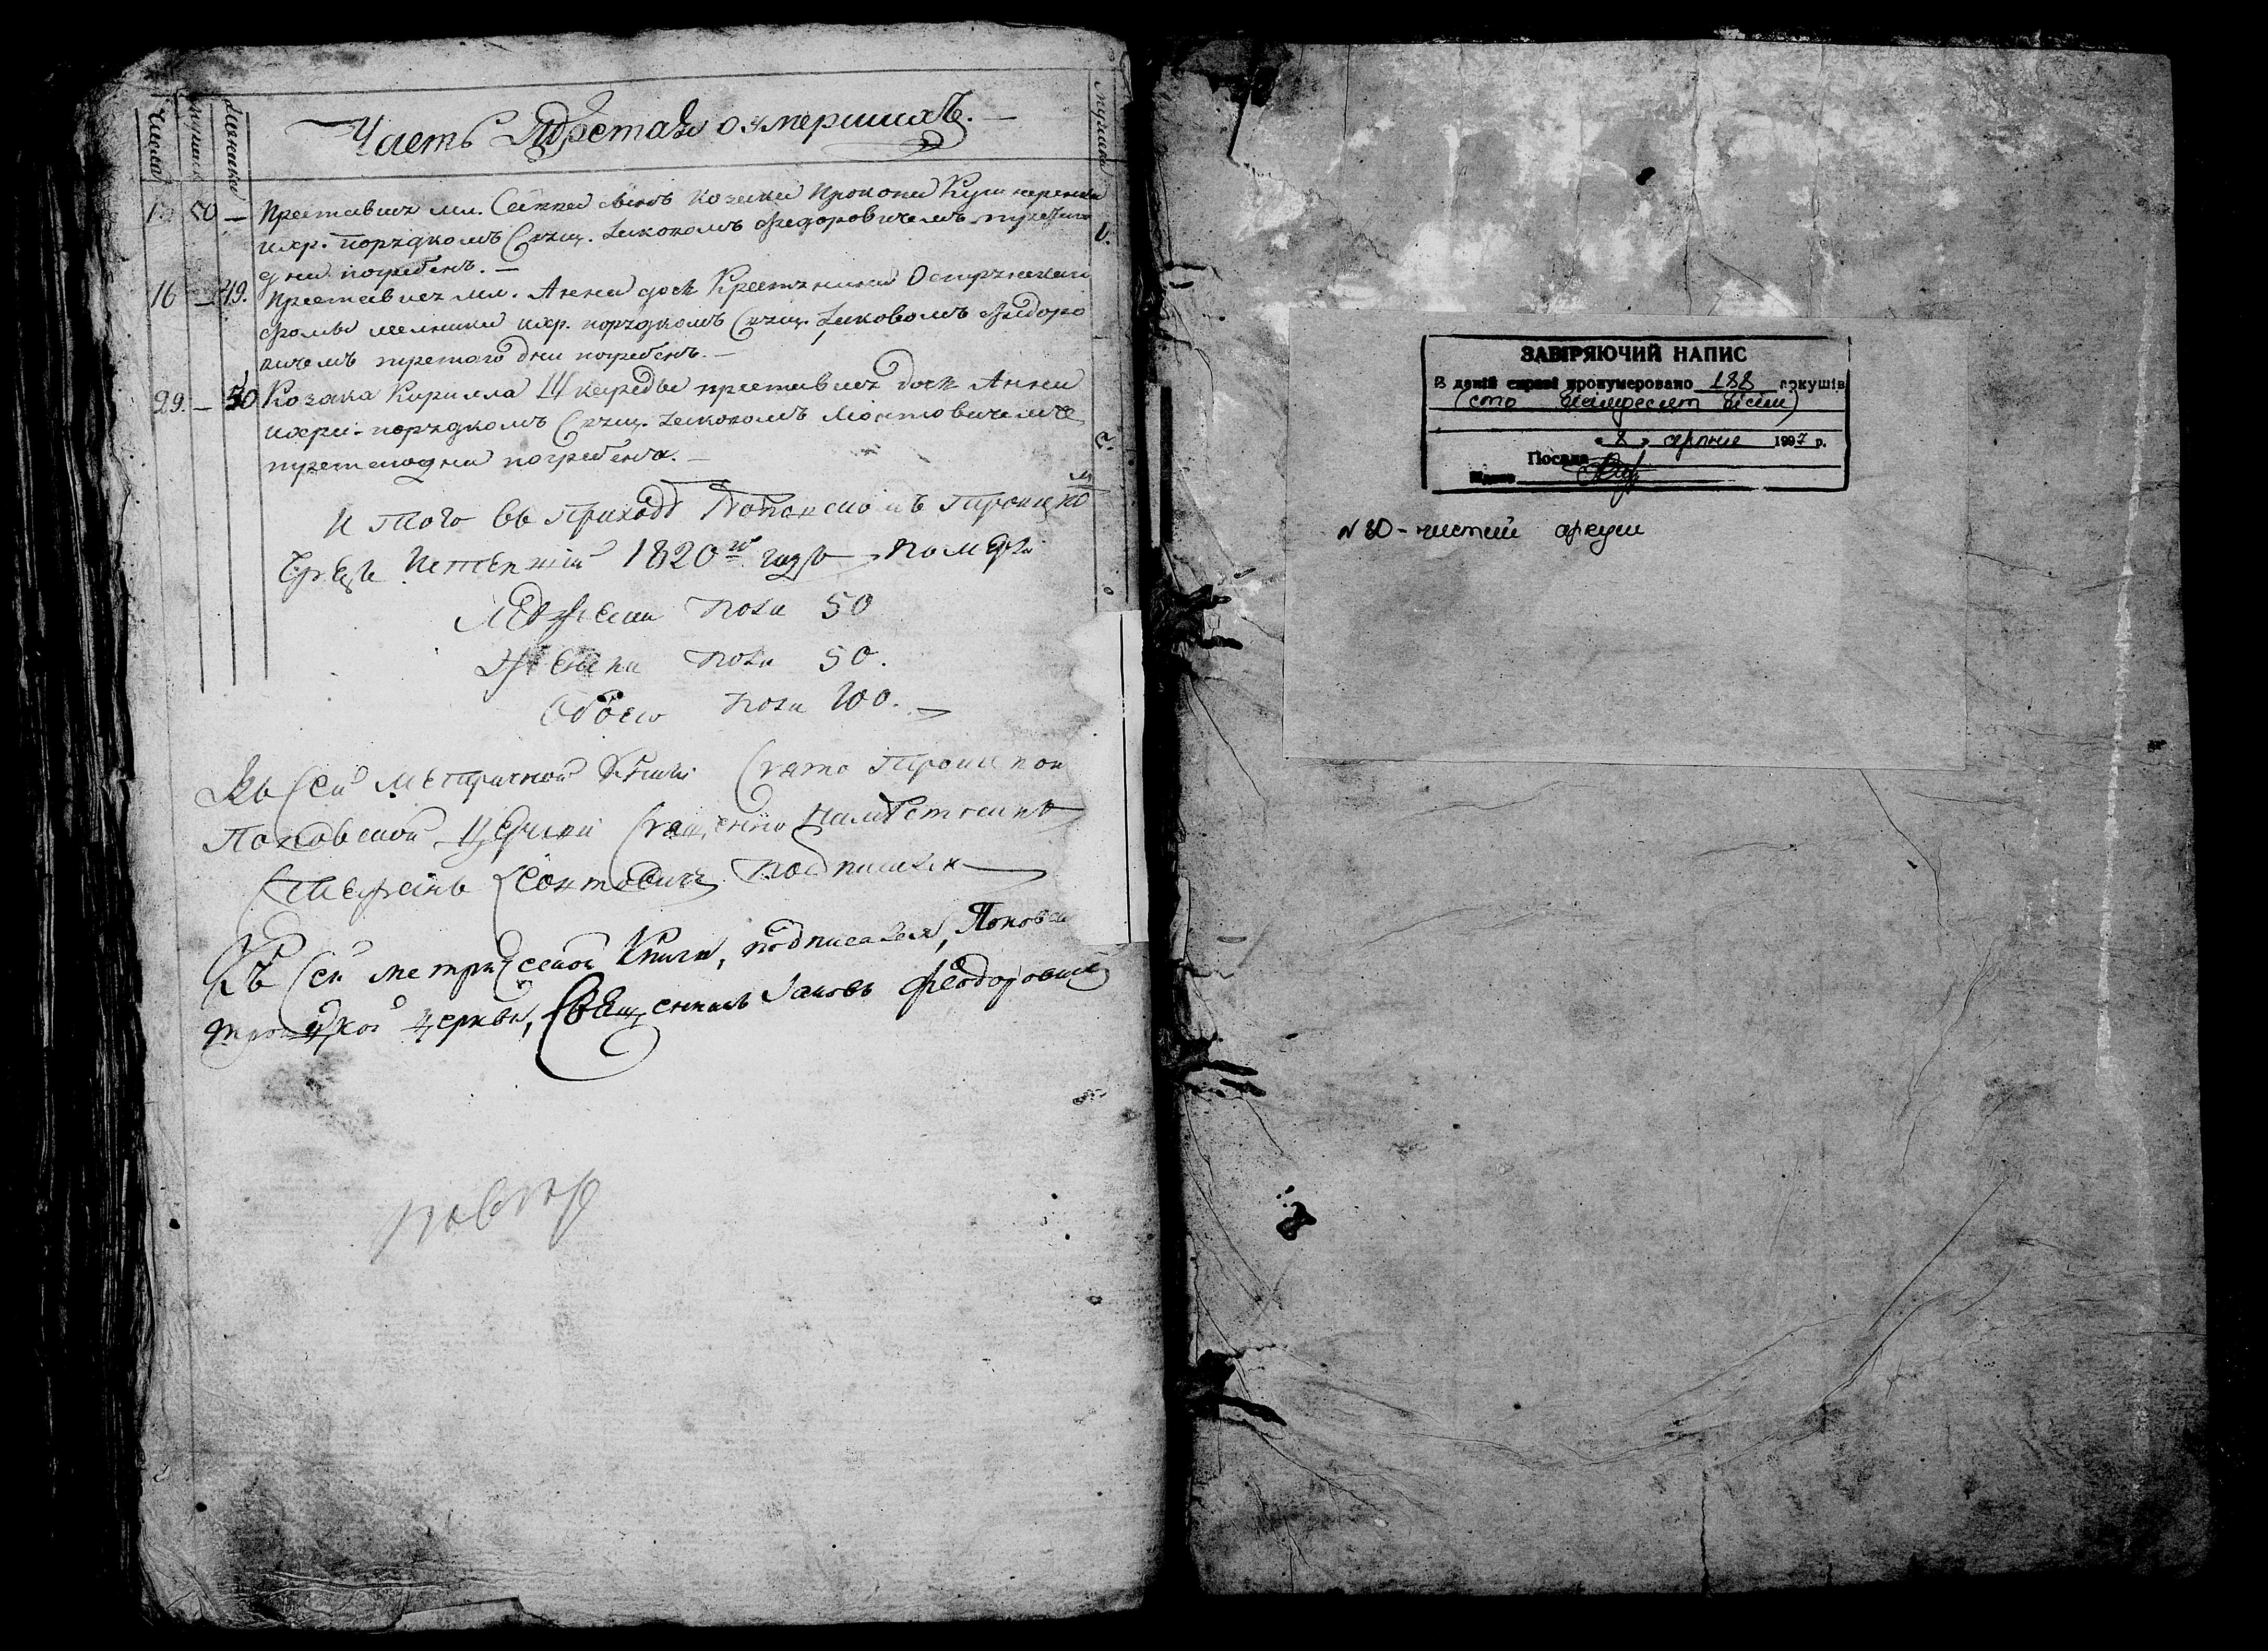 Числа
мужиска
жениска
Часть Третая о умершихъ.
мужиска
12 50 — Преставися мл. Савка сынъ козака Прокопа Кушнеренка
и хр. порядкомъ Свящ. Іаковомъ Федоровичемъ третого
дня погребенъ. —
1.
16 — 49. Преставися мл. Анна дочь Крестянина
Фомы мелника и хр. порядкомъ Свящ. Іаковомъ Федоро
вичемъ третого дня погребенъ. —
29. — 50 Козака Кирилла преставися дочь Анна
и хри. порядкомъ Свящ. Іаковомъ
третего дня погребена. —
2.
И того въ приходѣ Поповскомъ Троицко
1820го году померло
Мужеска пола 50
Женска пола 50.
Обоего пола 100.
Къ сей метричной книги Свято Троицкой
Поповской Церкви Священно Намѣстникъ
Стефанъ Леонтовичъ подписался
Къ сей метрической Книги, подписался, Поповской
Троицкой церкви, Священникъ Іаковъ Феодоровичъ
ЗАВІРЯЮЧИЙ НАПИС
В даній справі пронумеровано 188 аркушів
(сто вісімдесят вісім)
« 8 » серпня 1997 р.
Посада
Підпис
N 80 - чистий аркуш